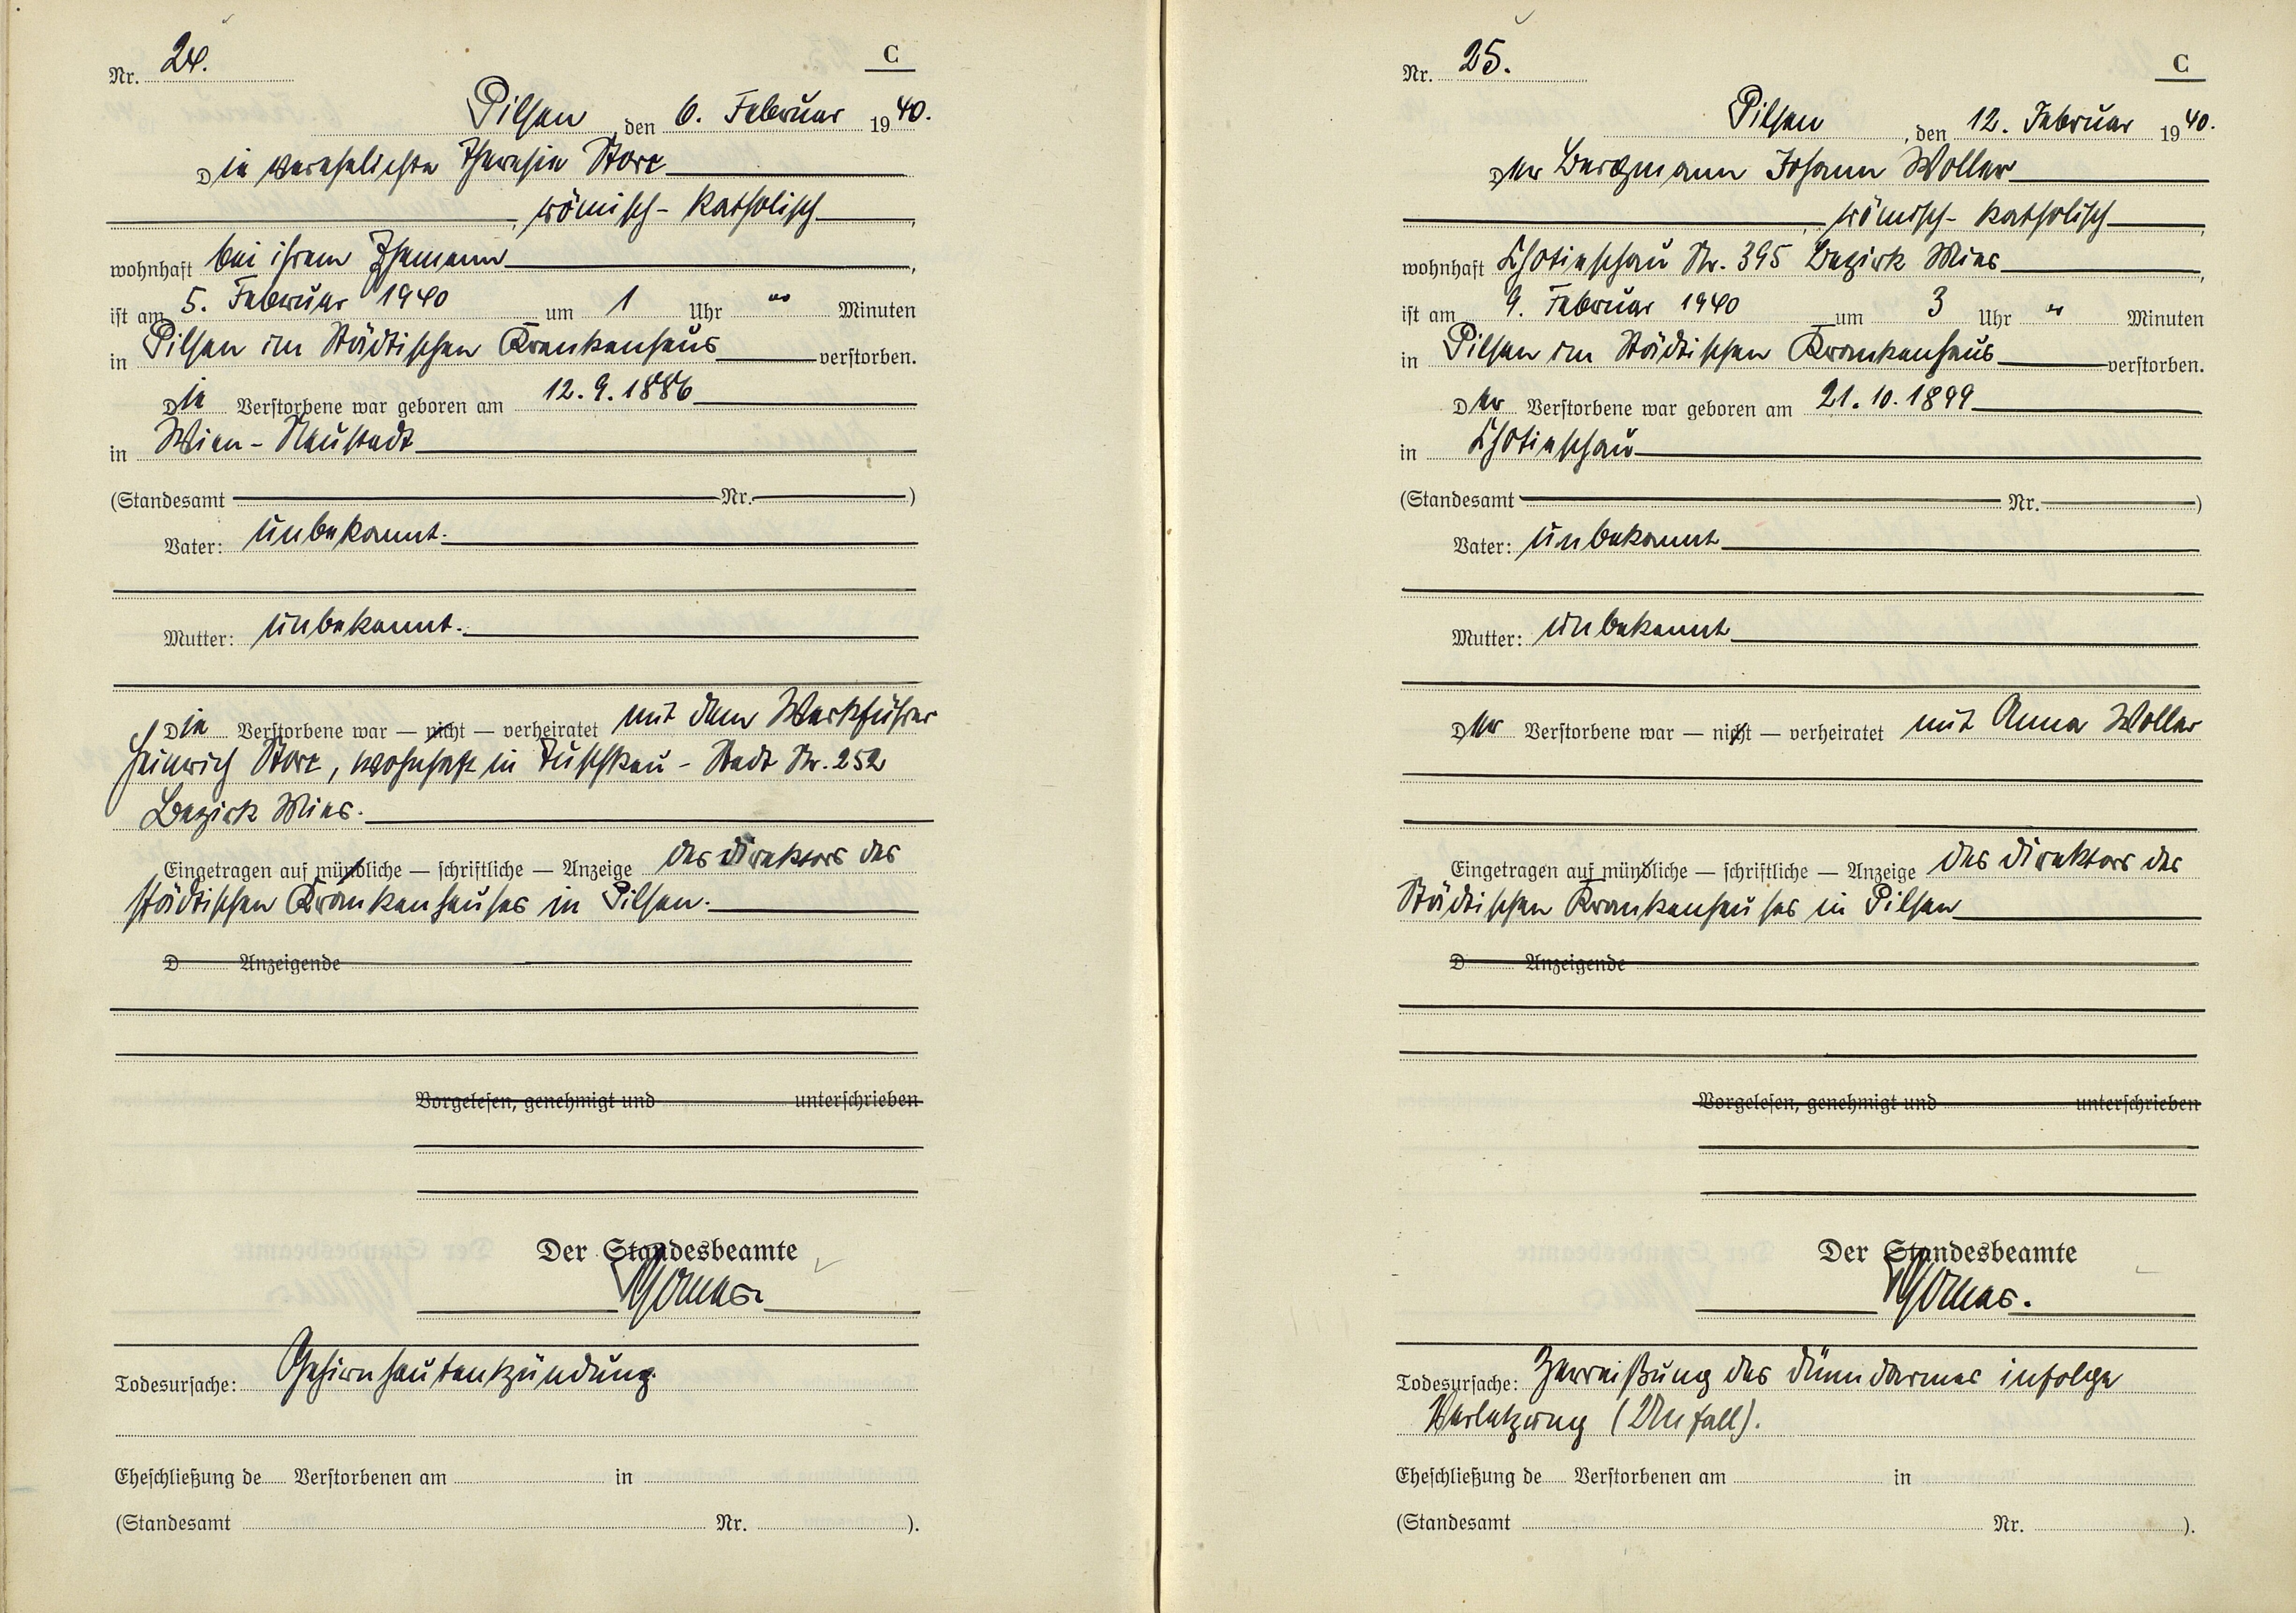 Nr. 24.
C
Pilsen, den 6. Februar 1940.
Die verehelichte Theresia Storc
, römisch-katholisch,
wohnhaft bei ihrem Ehemann,
ist am 5. Februar 1940 um 1 Uhr „ Minuten
in Pilsen im Städtischen Krankenhaus verstorben.
Die Verstorbene war geboren am 12.9.1886
in Wien-Neustadt
(Standesamt Nr. )
Vater: unbekannt.
Mutter: unbekannt.
Die Verstorbene war — nicht — verheiratet mit dem Werkführer
Heinrich Storc, wohnhaft in Tuschkau-Stadt Nr. 252
Bezirk Mies.
Eingetragen auf mündliche — schriftliche — Anzeige des Direktors des
städtischen Krankenhauses in Pilsen.
D Anzeigende
Vorgelesen, genehmigt und unterschrieben
Der Standesbeamte
Todesursache: Gehirnhautentzündung.
Eheschließung de Verstorbenen am in
(Standesamt Nr. ).
Nr. 25.
C
Pilsen, den 12. Februar 1940.
Der Bergmann Johann Woller
, römisch-katholisch,
wohnhaft Chotieschau Nr. 395 Bezirk Mies,
ist am 9. Februar 1940 um 3 Uhr „ Minuten
in Pilsen im Städtischen Krankenhaus verstorben.
Der Verstorbene war geboren am 21.10.1899
in Chotieschau
(Standesamt Nr. )
Vater: unbekannt
Mutter: unbekannt
Der Verstorbene war — nicht — verheiratet mit Anna Woller
Eingetragen auf mündliche — schriftliche — Anzeige des Direktors des
Städtischen Krankenhauses in Pilsen
D Anzeigende
Vorgelesen, genehmigt und unterschrieben
Der Standesbeamte
Todesursache: Zerreißung des Dünndarmes infolge
Verletzung (Unfall).
Eheschließung de Verstorbenen am in
(Standesamt Nr. ).